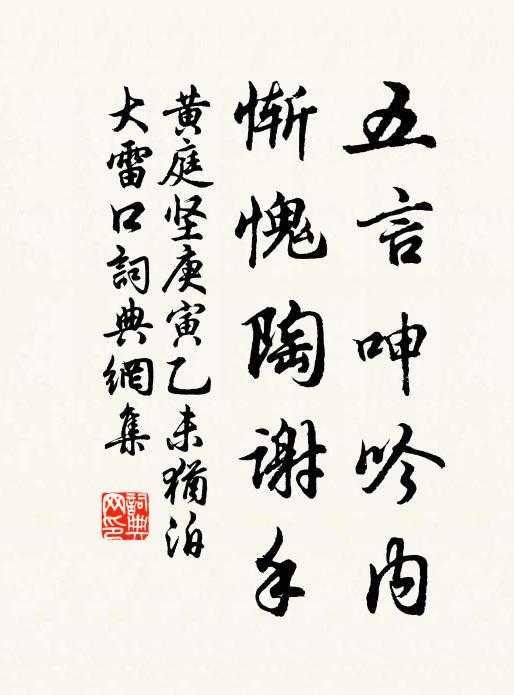 五言呻吟内
慚愧陶谢手
黄庭坚庚寅乙未犹泊
大雷口詞典網集
詞典
网印